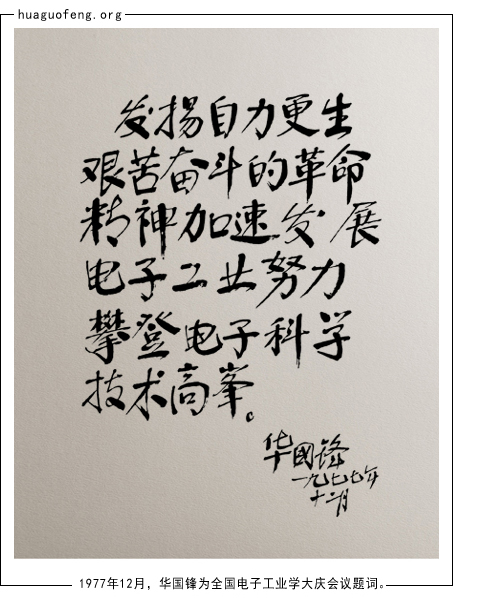 huaguofeng.org
发揚自力更生
艰苦奋斗的革命
精神加速发展
电子工业努力
攀登电子科学
技术高峯。
华國锋
一九七七年
十二月
1977年12月，华国锋为全国电子工业学大庆会议题词。